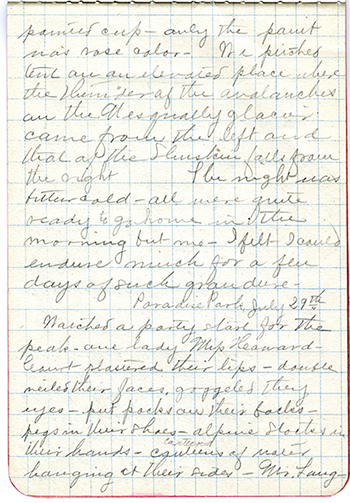 painted cup - only the paint
was rose color - We pitched
tent on an elevated place where
the thunder of the avalanches
on the Nesqually glacier
came from the left and
that of the Sluiskin falls from
the right The night was
bitter cold - all were quite
ready to go home in the
morning but me - I felt I could
endure much for a few
days of such grandeur -
Paradise Park, July 29th
Watched a party start for the
peak - one lady Miss
Court plastered their lips - double
veiled their faces, goggeled they
eyes - put packs on their backs -
pegs in their shoes - alpine stocks in
their hands - canteens of water
hanging at their sides - Mr. Long-